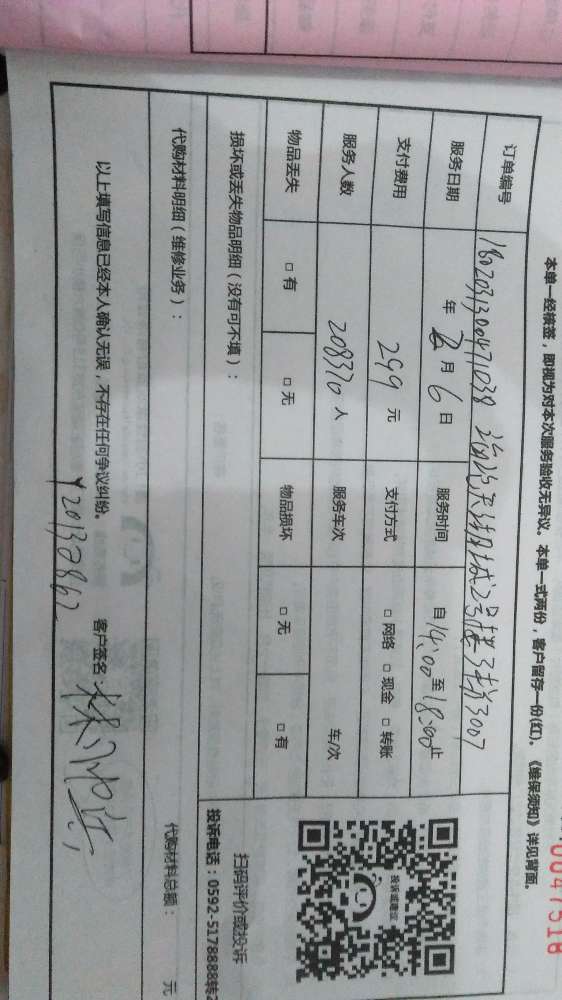 0047518
本单一经核签，即视为对本次服务验收无异议。本单一式两份，客户留存一份(红)。《维保须知》详见背面。
订单编号 1802031300471038 2号楼 3007
服务日期 年 2月6日 服务时间 自14:00至18:00止
支付费用 299元 支付方式 □网络 □现金 □转账
服务人数 208370人 服务车次 车/次
物品丢失 □有 □无 物品损坏 □无 □有
损坏或丢失物品明细（没有可不填）：
扫码评价或投诉
投诉电话：0592-5178888转2
代购材料明细（维修业务）：
代购材料总额： 元
以上填写信息已经本人确认无误，不存在任何争议纠纷。 客户签名：
Y20130862